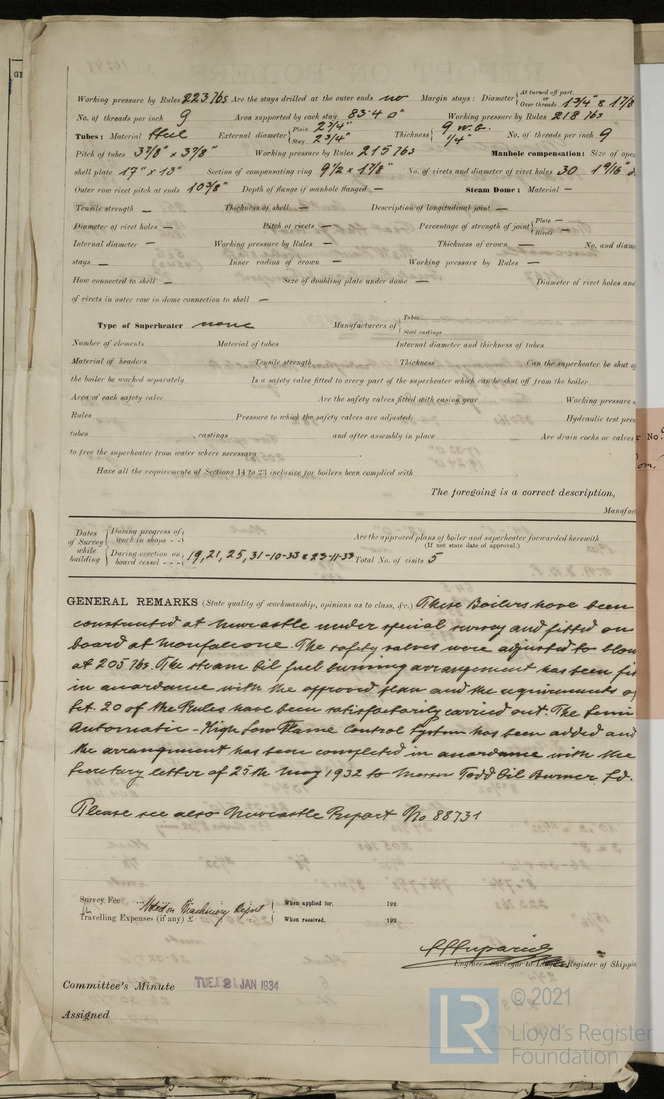 Working pressure by Rules 223 lbs Are the stays drilled at the outer ends no Margin stays: Diameter { At turned off part, or Over threads 1 3/4" & 1 7/8
No. of threads per inch 9 Area supported by each stay 83.4 □" Working pressure by Rules 218 lbs
Tubes: Material Steel External diameter { Plain 2 3/4" Stay 2 3/4" Thickness { 9 W.G. 1/4" No. of threads per inch 9
Pitch of tubes 3 7/8" x 3 7/8" Working pressure by Rules 215 lbs Manhole compensation: Size of ope
shell plate 17" x 13" Section of compensating ring 9 1/2 x 1 7/8" No. of rivets and diameter of rivet holes 30 1 9/16" d.
Outer row rivet pitch at ends 10 3/8" Depth of flange if manhole flanged — Steam Dome: Material —
Tensile strength — Thickness of shell — Description of longitudinal joint —
Diameter of rivet holes — Pitch of rivets — Percentage of strength of joint { Plate — Rivets —
Internal diameter — Working pressure by Rules — Thickness of crown — No. and diam
stays — Inner radius of crown — Working pressure by Rules —
How connected to shell — Size of doubling plate under dome — Diameter of rivet holes and
of rivets in outer row in dome connection to shell —
Type of Superheater none Manufacturers of { Tubes Steel castings
Number of elements Material of tubes Internal diameter and thickness of tubes
Material of headers Tensile strength Thickness Can the superheater be shut o
the boiler be worked separately Is a safety valve fitted to every part of the superheater which can be shut off from the boiler
Area of each safety valve Are the safety valves fitted with easing gear Working pressure
Rules Pressure to which the safety valves are adjusted Hydraulic test pres
tubes , castings and after assembly in place Are drain cocks or valves
to free the superheater from water where necessary
Have all the requirements of Sections 14 to 23 inclusive for boilers been complied with
The foregoing is a correct description,
Manufac
Dates of Survey while building { During progress of work in shops - - Are the approved plans of boiler and superheater forwarded herewith
(If not state date of approval.)
During erection on board vessel - - - 19, 21, 25, 31-10-33 & 23-11-33 Total No. of visits 5
GENERAL REMARKS (State quality of workmanship, opinions as to class, &c.) These Boilers have been
constructed at Newcastle under special survey and fitted on
board at Monfalcone. The safety valves were adjusted to blow
at 205 lbs. The steam oil fuel burning arrangement has been fit
in accordance with the approved plan and the requirements of
Sct. 20 of the Rules have been satisfactorily carried out. The Semi
Automatic - High Low Flame Control System has been added and
the arrangement has been completed in accordance with the
Secretary letter of 25th May 1932 to Messrs Todd Oil Burner Ld.
Please see also Newcastle Report No 88731
Survey Fee Machinery Report When applied for, 192
Travelling Expenses (if any) £ : : When received, 192
Engineer Surveyor to Lloyd's Register of Shippin
Committee's Minute TUE. 2 JAN 1934
Assigned
LR © 2021
Lloyd's Register
Foundation